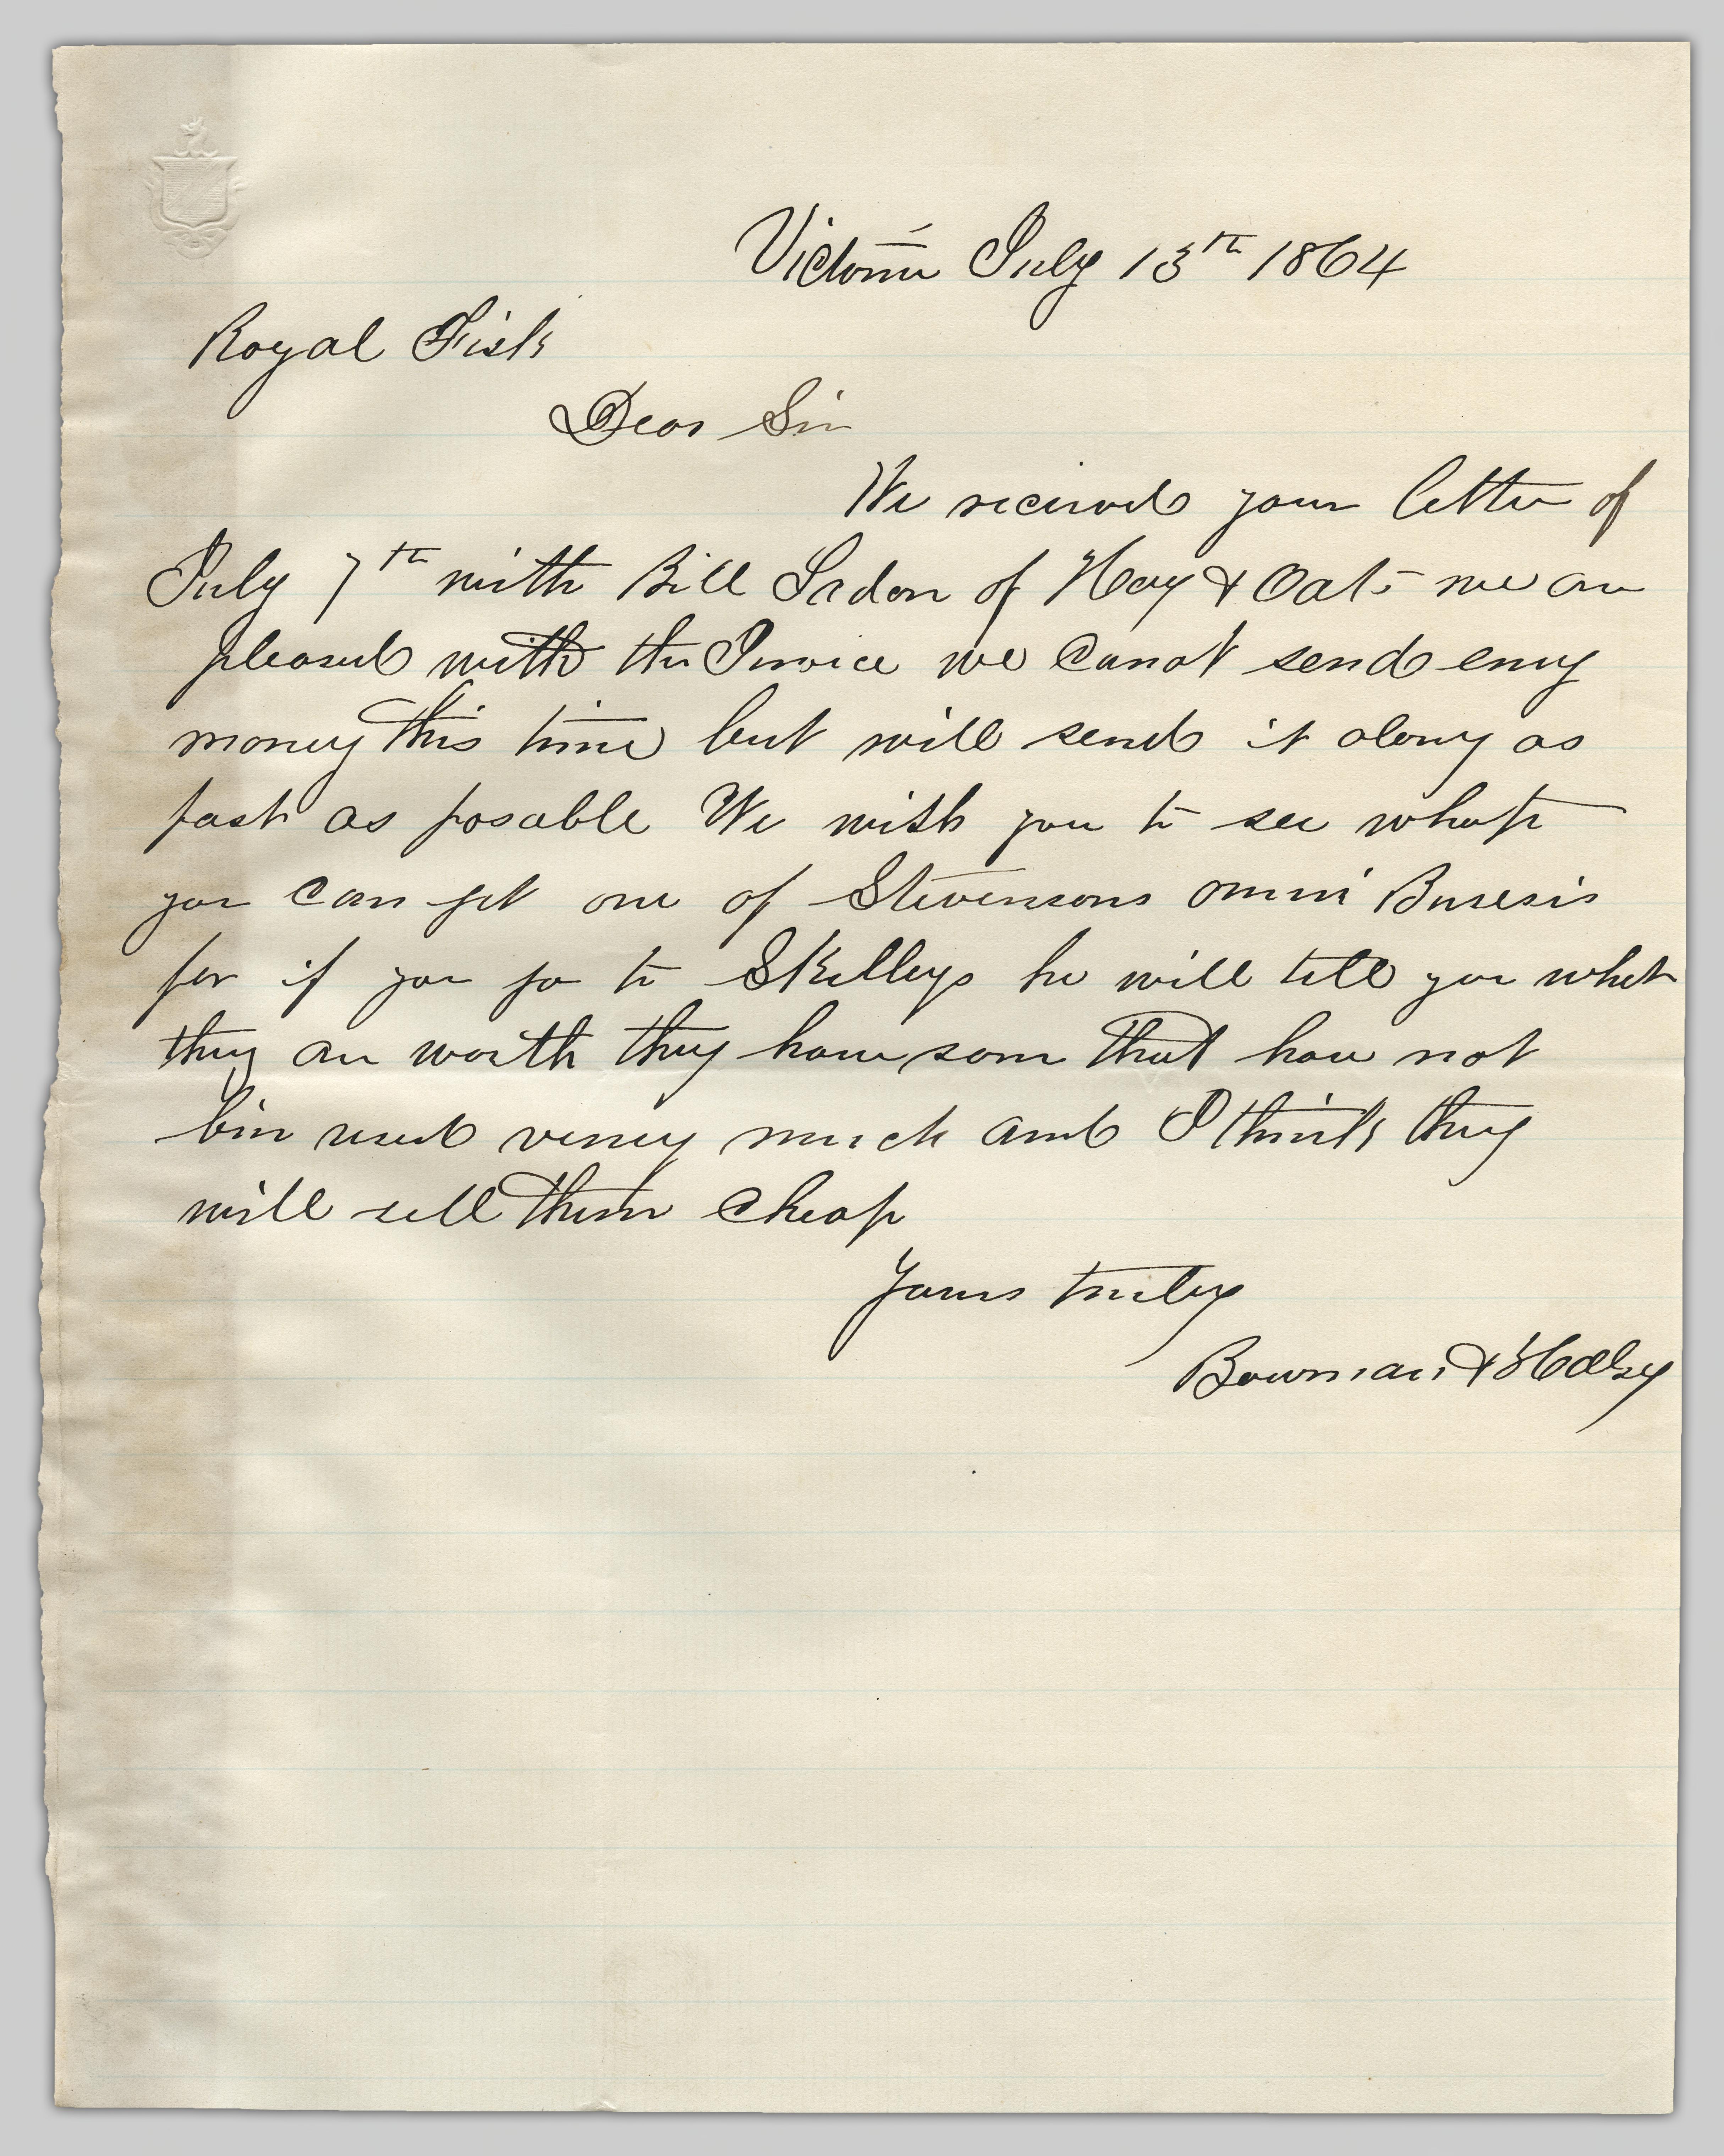 Victoria July 13th 1864
Royal Fisk
Dear Sir
We recieved your letter of
July 7th with Bill Ladon of Hay & Oats we are
pleased with the Invoice we canot send eny
money this time but will send it along as
fast as posable We wish you to see what
you can get one of Stevensons omni Buseses
for if you go to Skelleys he will tell you what
they are worth they have som that have not
bin used verey much and I think they
will sell them cheap
Yours truley
Bowman & Halsey